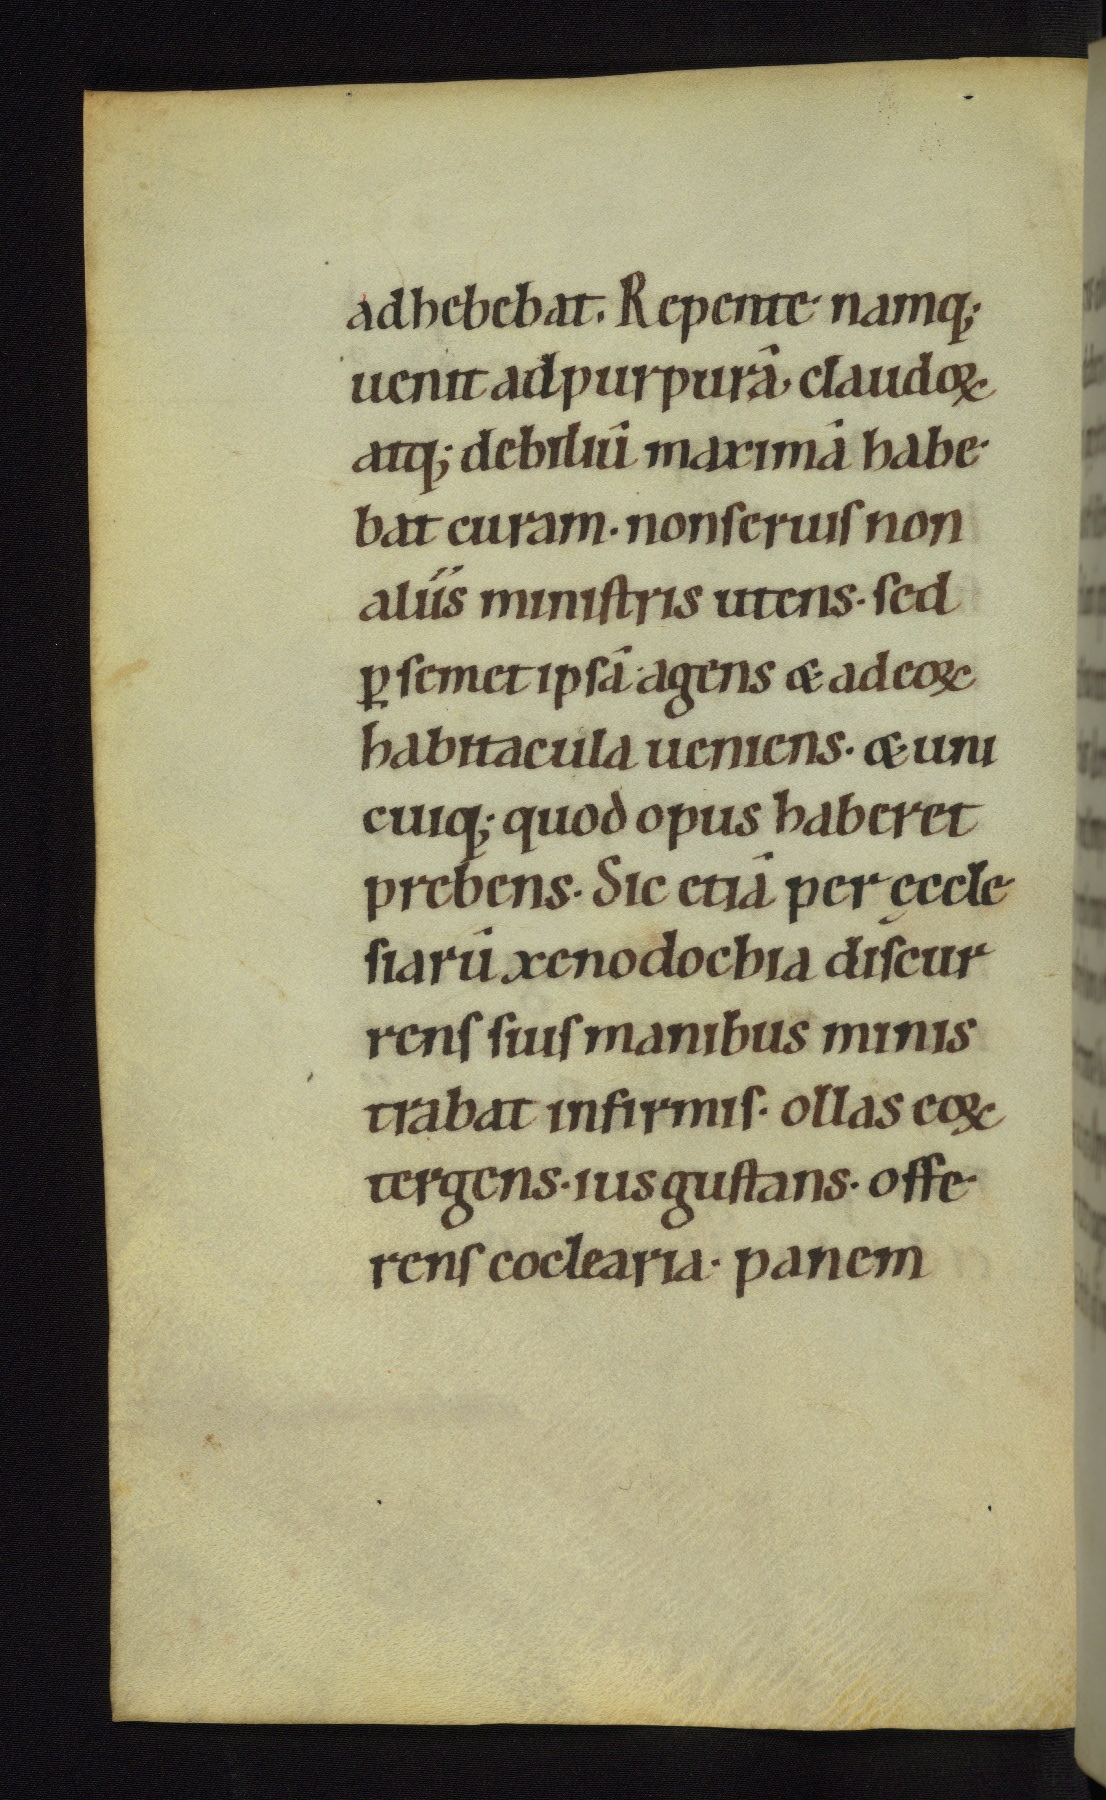 adhebebat. Repente namq;
uenit ad purpurā, claudoꝝ
atq; debiliū maximā habe
bat curam. non seruis non
aliis ministris utens. sed
ꝑ semet ipsā agens & ad eoꝝ
habitacula ueniens. & uni
cuiq; quod opus haberet
prebens. Sic etiā per ęccle
siarū xenodochia discur
rens suis manibus minis
trabat infirmis. ollas eoꝝ
tergens. ius gustans. offe
rens coclearia. panem